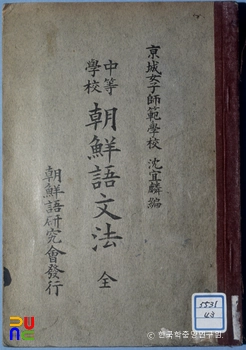 京城女子師範學校 沈宜麟編
中等
學校
朝鮮語文法 全
朝鮮語研究會發行
5531
43
PUN
© 한국학중앙연구원